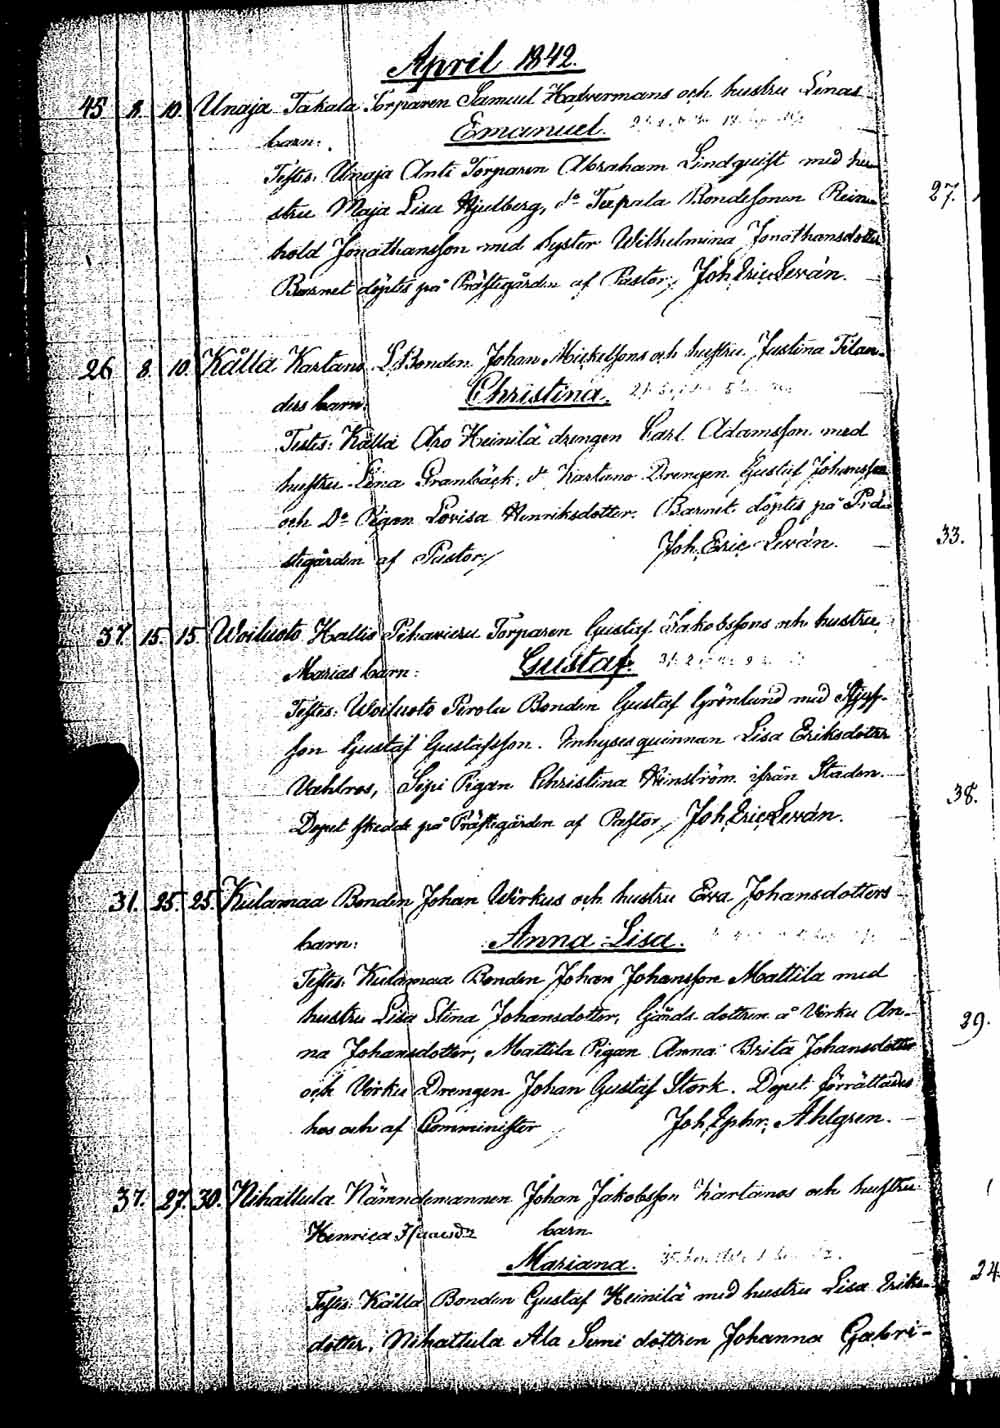 April 1842.
45 8. 10. Unaja Takala Torparen Samuel Halvermans och hustru Lenas
barn: Emanuel.
Testes: Unaja Anti Torparen Abraham Lindquist med hu-
stru Maja Lisa Hjelberg, do Tupala Bondesonen Rein-
hold Jonathansson med Syster Wilhelmina Jonathansdotter
Barnet döptes på Prästegården af Pastor, Joh. Eric Levàn.
26 8. 10. Kålla Kartano Bonden Johan Mickelssons och hustru Justina Tilan-
ders barn: Christina.
Testes: Kålla Aro Heinilä drengen Carl Adamsson med
hustru Lena Granbäck, do Kartano Drengen Gustaf Johansson
och Do Pigan Lovisa Henriksdotter. Barnet döptes på Prä-
stegården af Pastor, Joh. Eric Levàn.
37. 15. 15. Woiluoto Hallio Pihavieru Torparen Gustaf Jakobssons och hustru
Marias barn: Gustaf.
Testes: Woiluoto Perola Bonden Gustaf Grönlund med Styf-
son Gustaf Gustafsson. Inhysesquinnan Lisa Eriksdotter
Vahlros, Sipi Pigan Christina Winström ifrån Staden.
Dopet skedde på Prästegården af Pastor, Joh. Eric Levàn.
31. 25. 25. Kulamaa Bonden Johan Wirkus och hustru Eva Johansdotters
barn: Anna Lisa.
Testes: Kulamaa Bonden Johan Johansson Mattila med
hustru Lisa Stina Johansdotter, Gårds dottren a Virku An-
na Johansdotter, Mattila Pigan Anna Brita Johansdotter
och Virku Drengen Johan Gustaf Stork. Dopet förrättades
hos och af Comminister, Joh. Ephr. Ahlgren.
37. 27. 30. Nihattula Nämndemannen Johan Jakobsson Kartanos och hustru
Henrica Isaacsdr barn
Mariana.
Testes: Kålla Bonden Gustaf Heinilä med hustru Lisa Eriks-
dotter, Nihattula Ala Simi dottren Johanna Gabri-
27.
33.
38.
29.
24